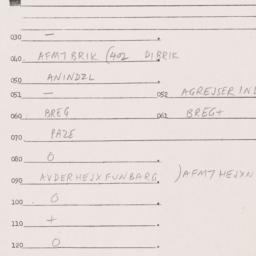 030 —
040 AFMT BRIK (402 DIBRIK
050 ANINDZL
051 — 052 AGREJSER IND
060 BREG 061 BREG+
070 PAZE
080 0
090 AVDERHEJXFUNBARG )AFMT HEJXN
100 0
110 +
120 0